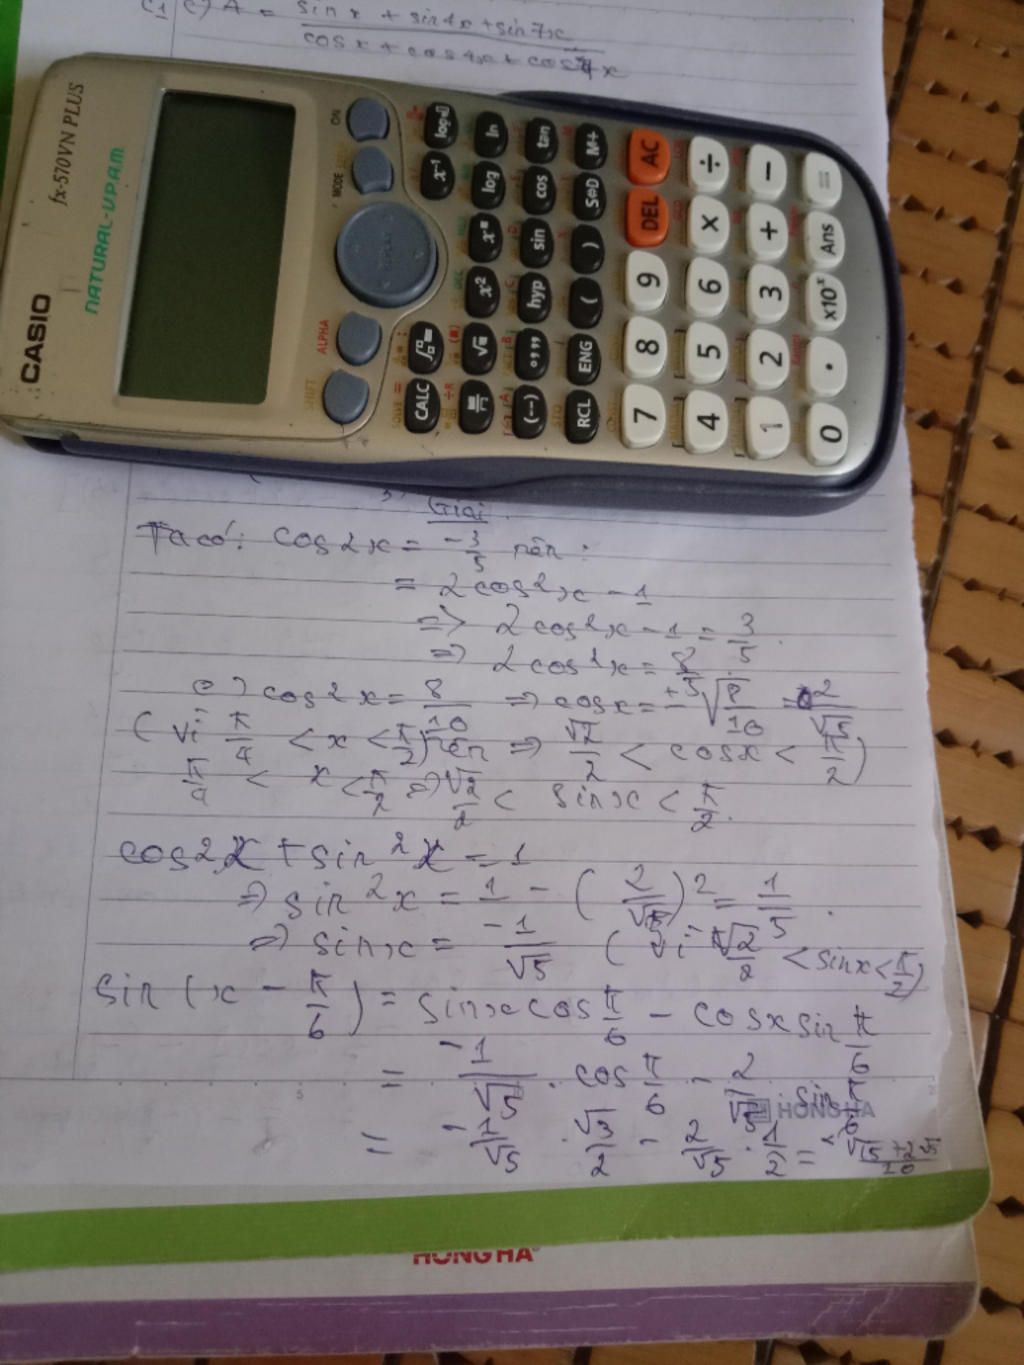 C1 c) A = sin x + sin 4x + sin 7x
cos x + cos 4x + cos 7x
CASIO
fx-570VN PLUS
NATURAL-V.P.A.M.
SHIFT ALPHA MODE ON
REPLAY
CALC x⁻¹ log
√ x² log ln
(−) °,,, hyp sin cos tan
RCL ENG ( ) S⇔D M+
7 8 9 DEL AC
4 5 6 × ÷
1 2 3 + −
0 . ×10ˣ Ans =
Giải
Ta có: cos 2x = -3/5 nên:
= 2cos²x - 1
=> 2cos²x - 1 = 3/5
=> 2cos²x = 8/5
(=) cos²x = 8/10 => cosx = ±√(8/10) = 2/√5
(Vì π/4 < x < π/2) nên => √2/2 < cosx < π/2)
π/4 < x < π/2 => √2/2 < sinx < π/2.
cos²x + sin²x = 1
=> sin²x = 1 - (2/√5)² = 1/5.
=> sinx = -1/√5 (Vì √2/2 < sinx < π/2)
sin(x - π/6) = sinx cos π/6 - cosx sin π/6
= -1/√5 . cos π/6 - 2/√5 sin π/6
= -1/√5 . √3/2 - 2/√5 . 1/2 = -(√15 + 2√5)/10
HONG HA
HONG HA